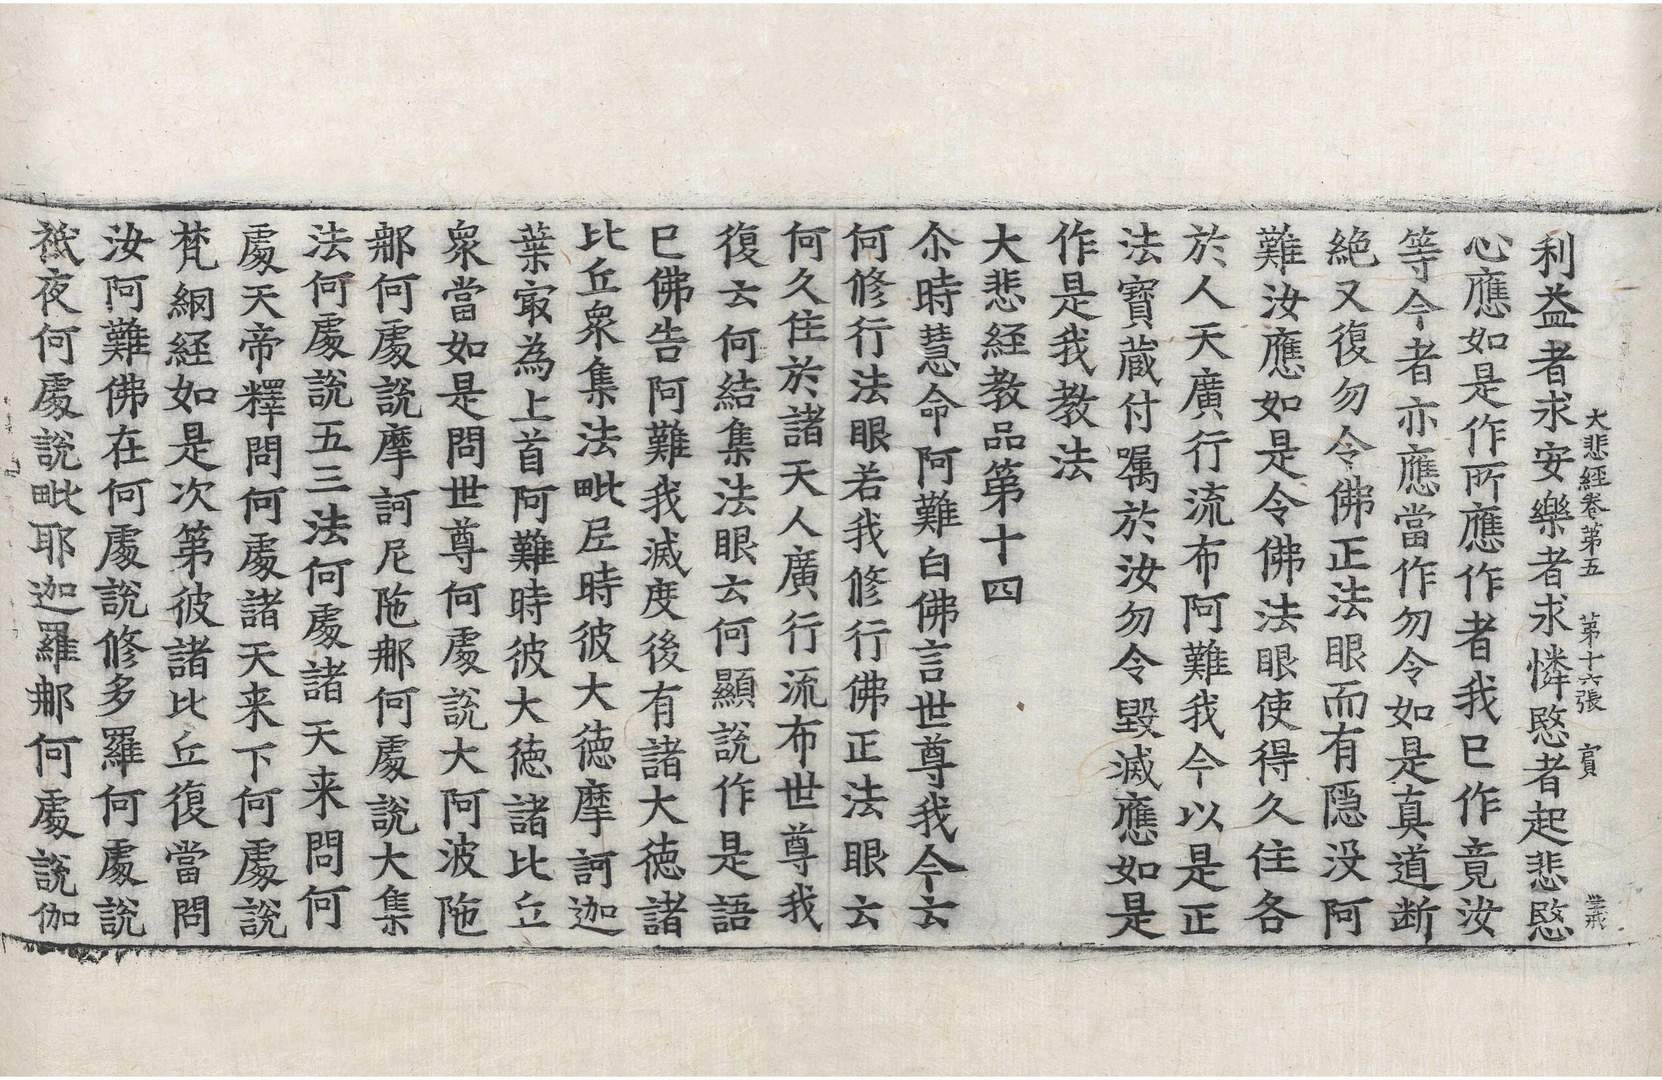 大悲經卷第五 第十六張 賓
利益者求安樂者求憐愍者起悲愍
心應如是作所應作者我已作竟汝
等今者亦應當作勿令如是真道断
絶又復勿令佛正法眼而有隱没阿
難汝應如是令佛法眼使得久住各
於人天廣行流布阿難我今以是正
法寶蔵付嘱於汝勿令毀滅應如是
作是我教法
大悲經教品第十四
尒時慧命阿難白佛言世尊我今云
何修行法眼若我修行佛正法眼云
何久住於諸天人廣行流布世尊我
復云何結集法眼云何顯說作是語
已佛告阿難我滅度後有諸大徳諸
比丘衆集法毗尼時彼大徳摩訶迦
葉㝡為上首阿難時彼大徳諸比丘
衆當如是問世尊何處說大阿波陁
那何處說摩訶尼陁那何處說大集
法何處說五三法何處諸天来問何
處天帝釋問何處諸天来下何處說
梵網經如是次第彼諸比丘復當問
汝阿難佛在何處說修多羅何處說
祇夜何處說毗耶迦羅那何處說伽